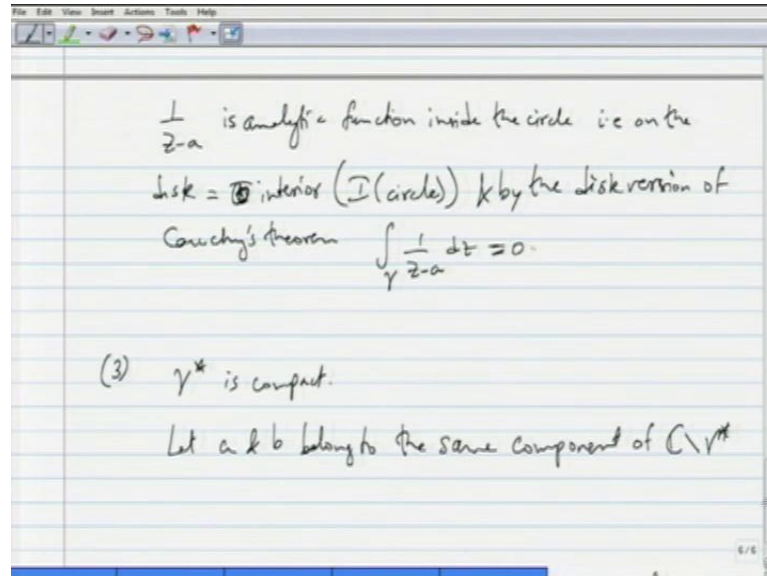 File Edit View Insert Actions Tools Help
1/(z-a) is analytic function inside the circle i.e on the
disk = interior (I(circle)) & by the disk version of
Cauchy's theorem ∫_γ 1/(z-a) dz = 0.
(3) γ* is compact.
Let a & b belong to the same component of ℂ\γ*
6/6